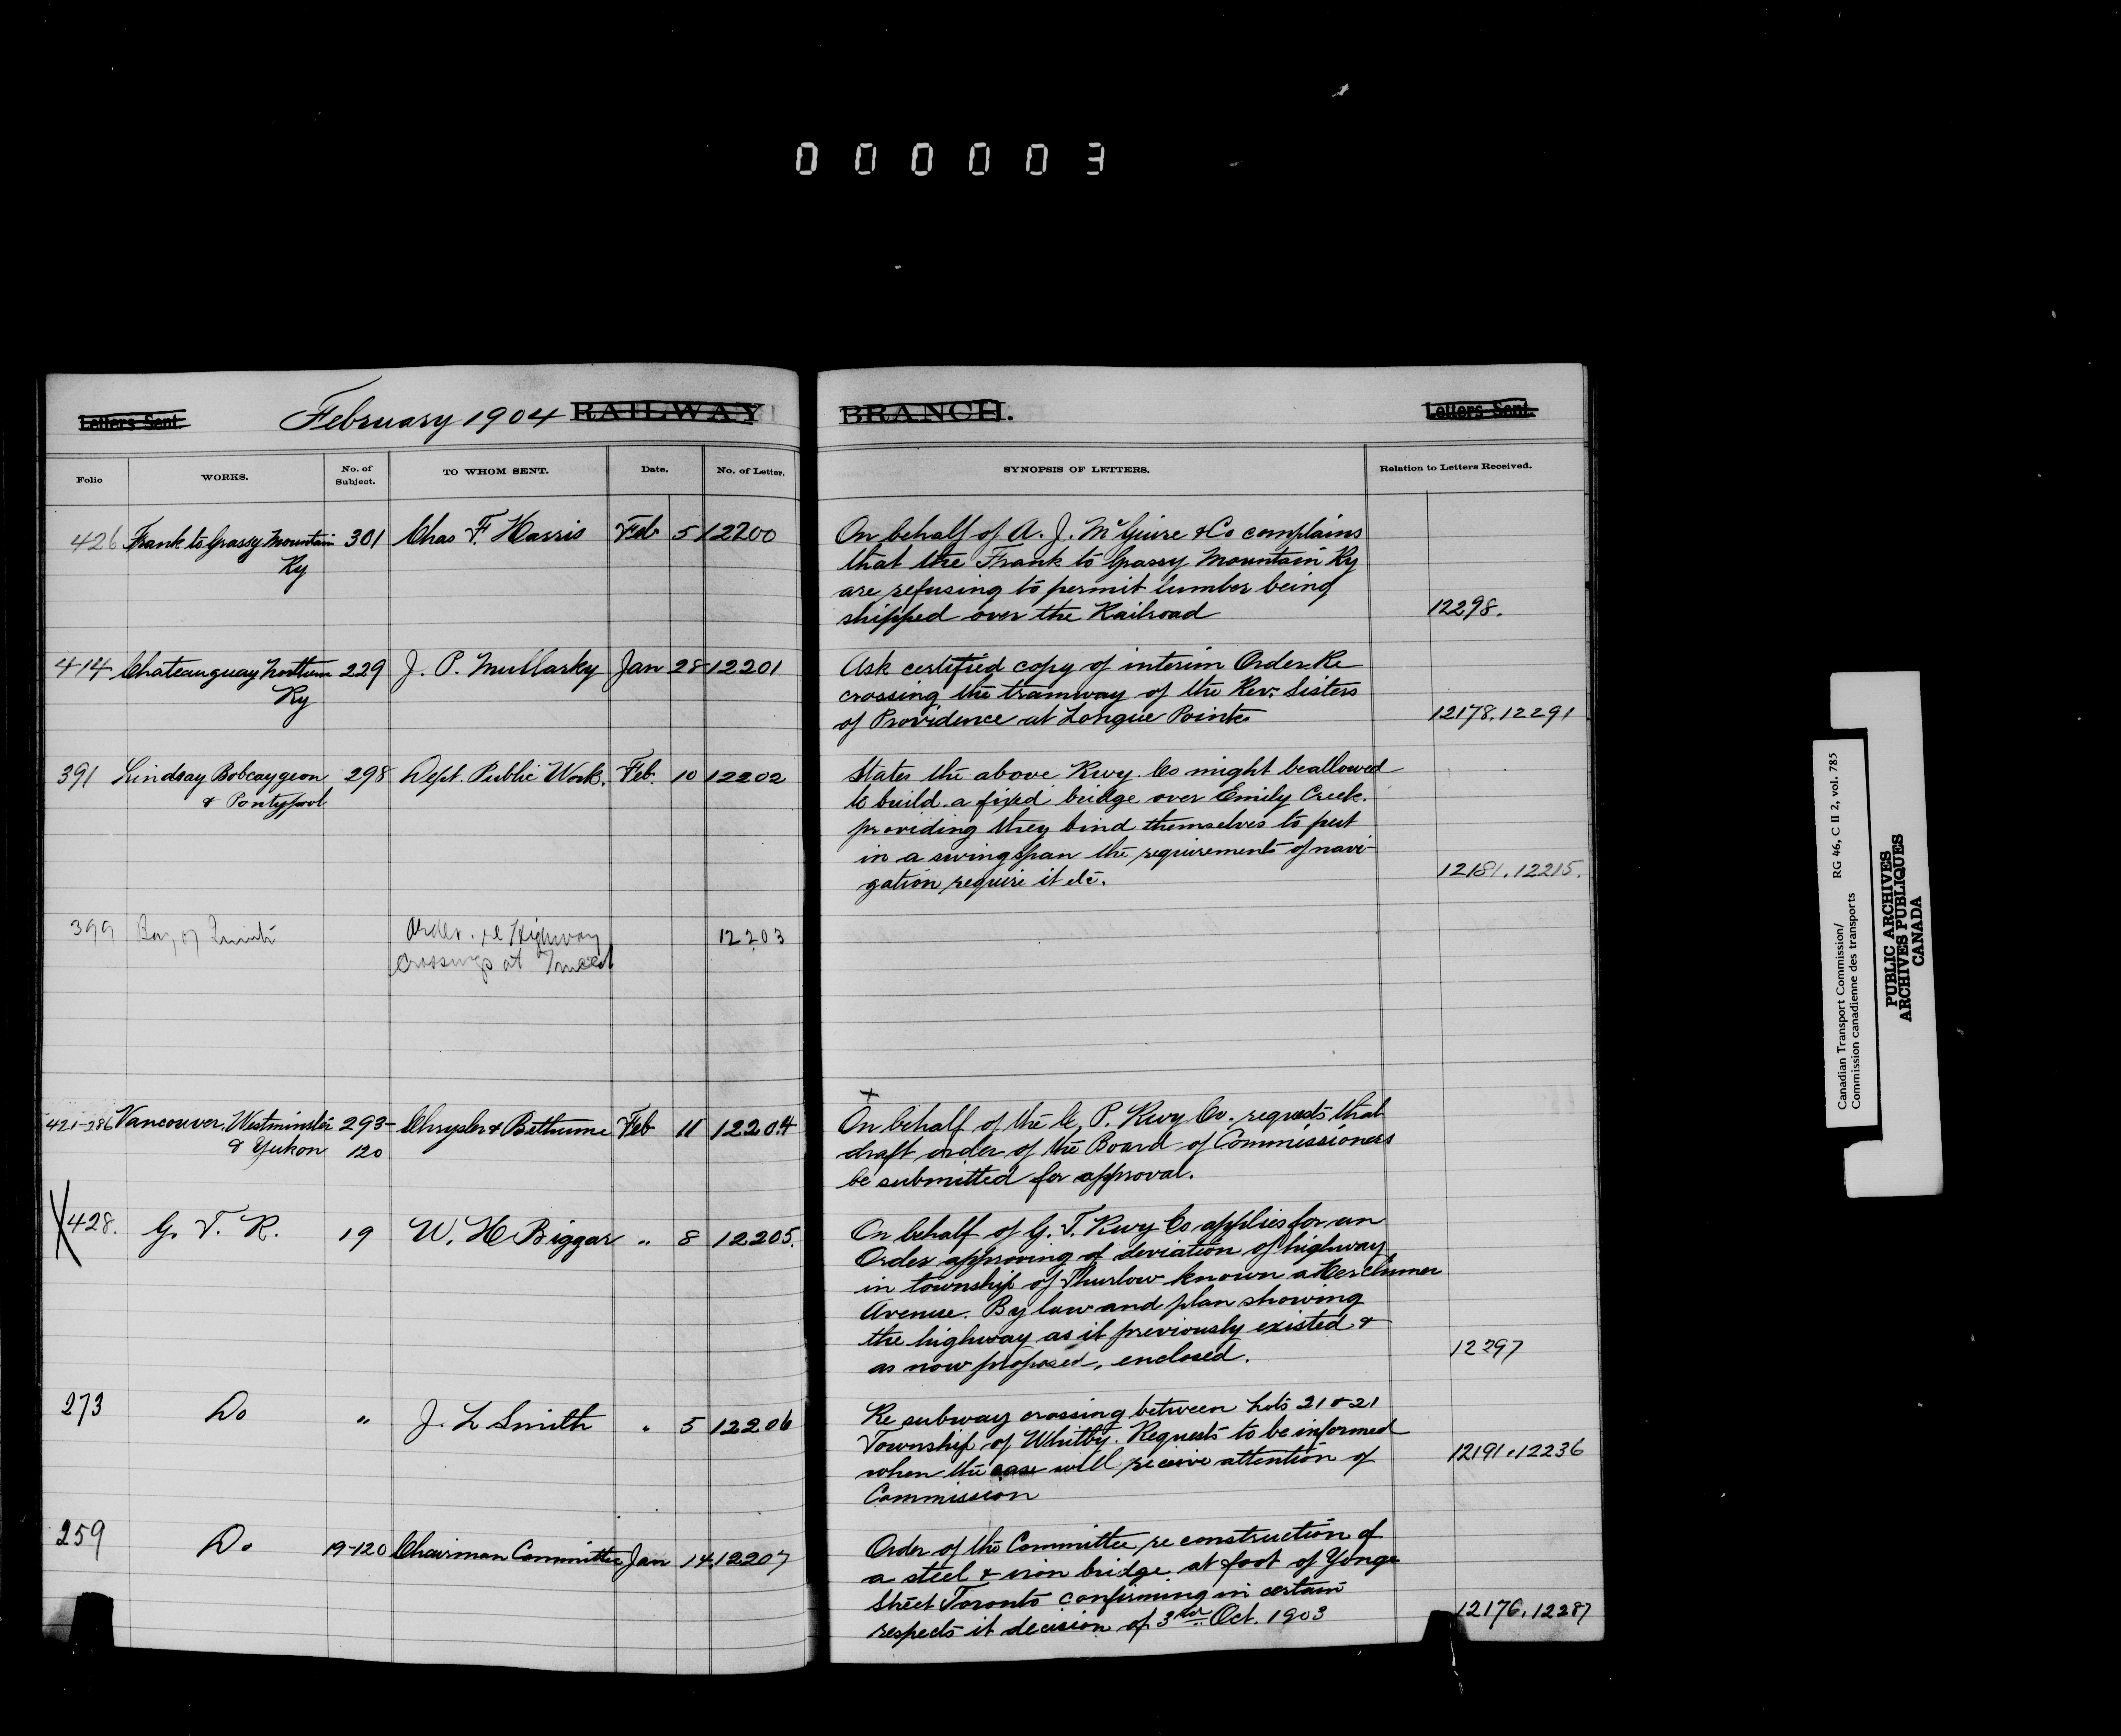 000003
Letters Sent.
February 1904 RAILWAY
BRANCH.
Letters Sent.
Folio WORKS. No. of Subject. TO WHOM SENT. Date. No. of Letter. SYNOPSIS OF LETTERS. Relation to Letters Received.
426 Frank to Grassy Mountain 301 Chas F. Harris Feb 5 12200 On behalf of A. J. McGuire & Co complains
Ry that the Frank to Grassy Mountain Ry
are refusing to permit lumber being
shipped over the Railroad 12298.
414 Chateauguay Northern 229 J. P. Mullarky Jan 28 12201 Ask certified copy of interim Order Re
Ry crossing the tramway of the Rev. Sisters
of Providence at Longue Pointe 12178.12291
391 Lindsay Bobcaygeon 298 Dept. Public Work. Feb. 10 12202 States the above Rwy. Co might be allowed
& Pontypool to build a fixed bridge over Emily Creek.
providing they bind themselves to put
in a swing span the requirements of navi-
gation require it etc. 12181.12215.
399 Bay of Quinte Order. re Highway 12203
Crossings at Tweed
421-286 Vancouver, Westminster 293- Chrysler & Bethune Feb 11 12204 On behalf of the C. P. Rwy Co. requests that
& Yukon 120 draft order of the Board of Commissioners
be submitted for approval.
X 428. G. T. R. 19 W. H Biggar " 8 12205. On behalf of G. T. Rwy Co applies for an
Order approving of deviation of highway
in township of Thurlow known a Herchimer
Avenue. By law and plan showing
the highway as it previously existed &
as now proposed, enclosed. 12297
273 Do " J. L Smith " 5 12206 Re subway crossing between Lots 21 & 21
Township of Whitby. Requests to be informed
when the case will receive attention of 12191.12236
Commission
259 Do 19-120 Chairman Committee Jan 14 12207 Order of the Committee re construction of
a steel & iron bridge at foot of Yonge
Street Toronto confirming in certain
respects it decision of 3rd Oct. 1903 12176.12287
Canadian Transport Commission/ RG 46, C II 2, vol. 785
Commission canadienne des transports
PUBLIC ARCHIVES
ARCHIVES PUBLIQUES
CANADA